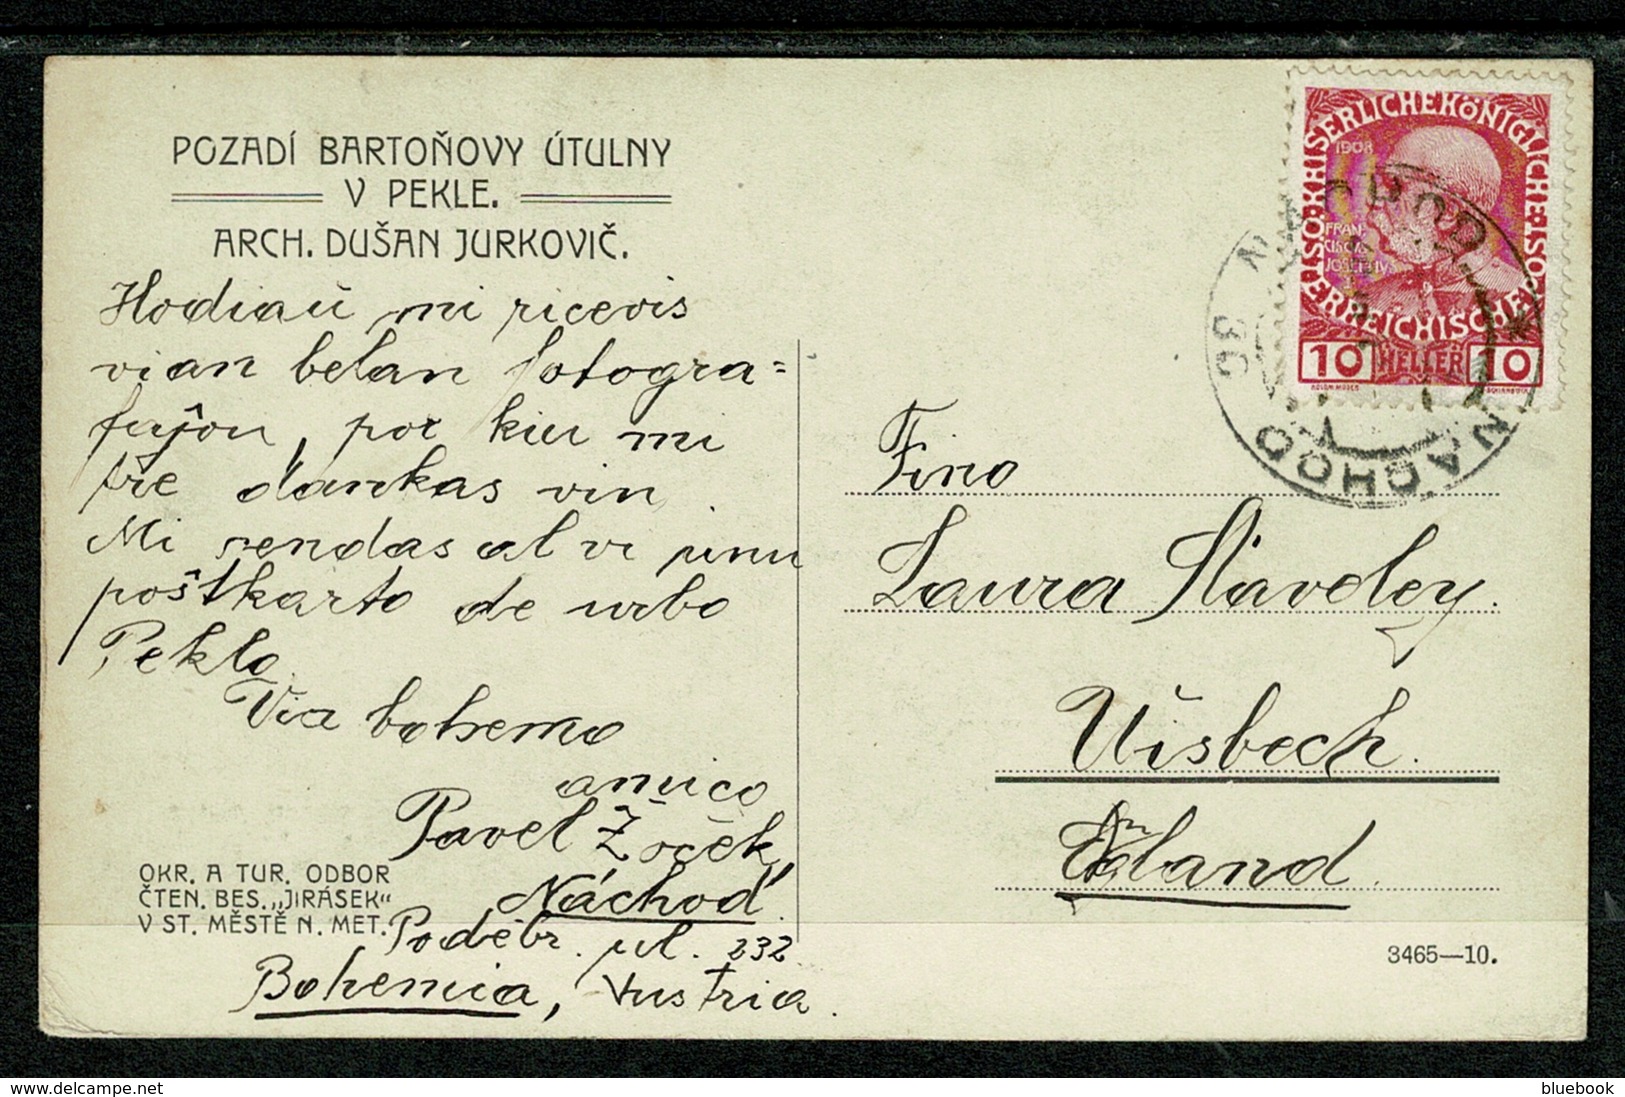 POZADÍ BARTOŇOVY ÚTULNY
V PEKLE.
ARCH. DUŠAN JURKOVIČ.
Hodiaŭ mi ricevis
vian belan fotogra=
fajon, por kiu mi
tre dankas vin
Mi sendas al vi unu
poŝtkarto de urbo
Peklo
Via bohemo
amico
Pavel
Náchod
Poděbr. ul. 232
Bohemia, Austria.
OKR. A TUR. ODBOR
ČTEN. BES. „JIRÁSEK“
V ST. MĚSTĚ N. MET.
KAISERLICHE KÖNIGLICHE
ÖSTERREICHISCHE
1908
FRAN-
CISCUS
JOSEPH I
10 HELLER 10
NÁCHOD
NACHOD
Fino
Laura Staveley.
Visbech.
Eland.
3465—10.
bluebook
Delcampe.net